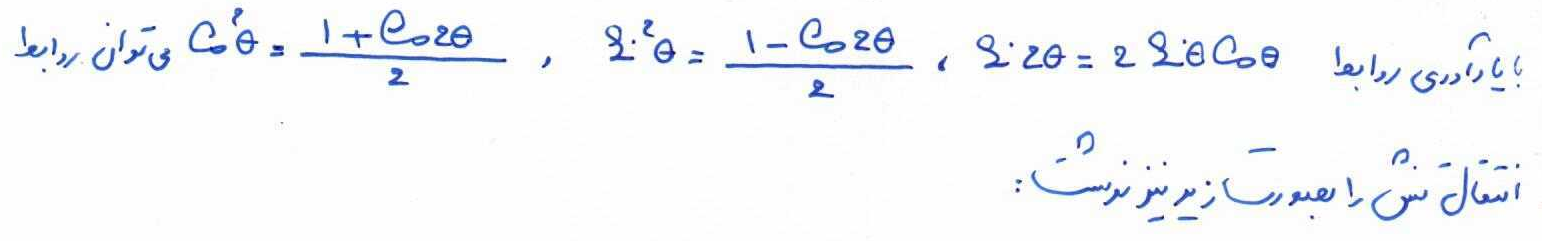 با یادآوری روابط Sin2θ = 2 Sinθ Cosθ ، Sin²θ = (1 - Cos2θ)/2 ، Cos²θ = (1 + Cos2θ)/2 می توان روابط
انتقال تنش را بصورت زیر نیز نوشت: